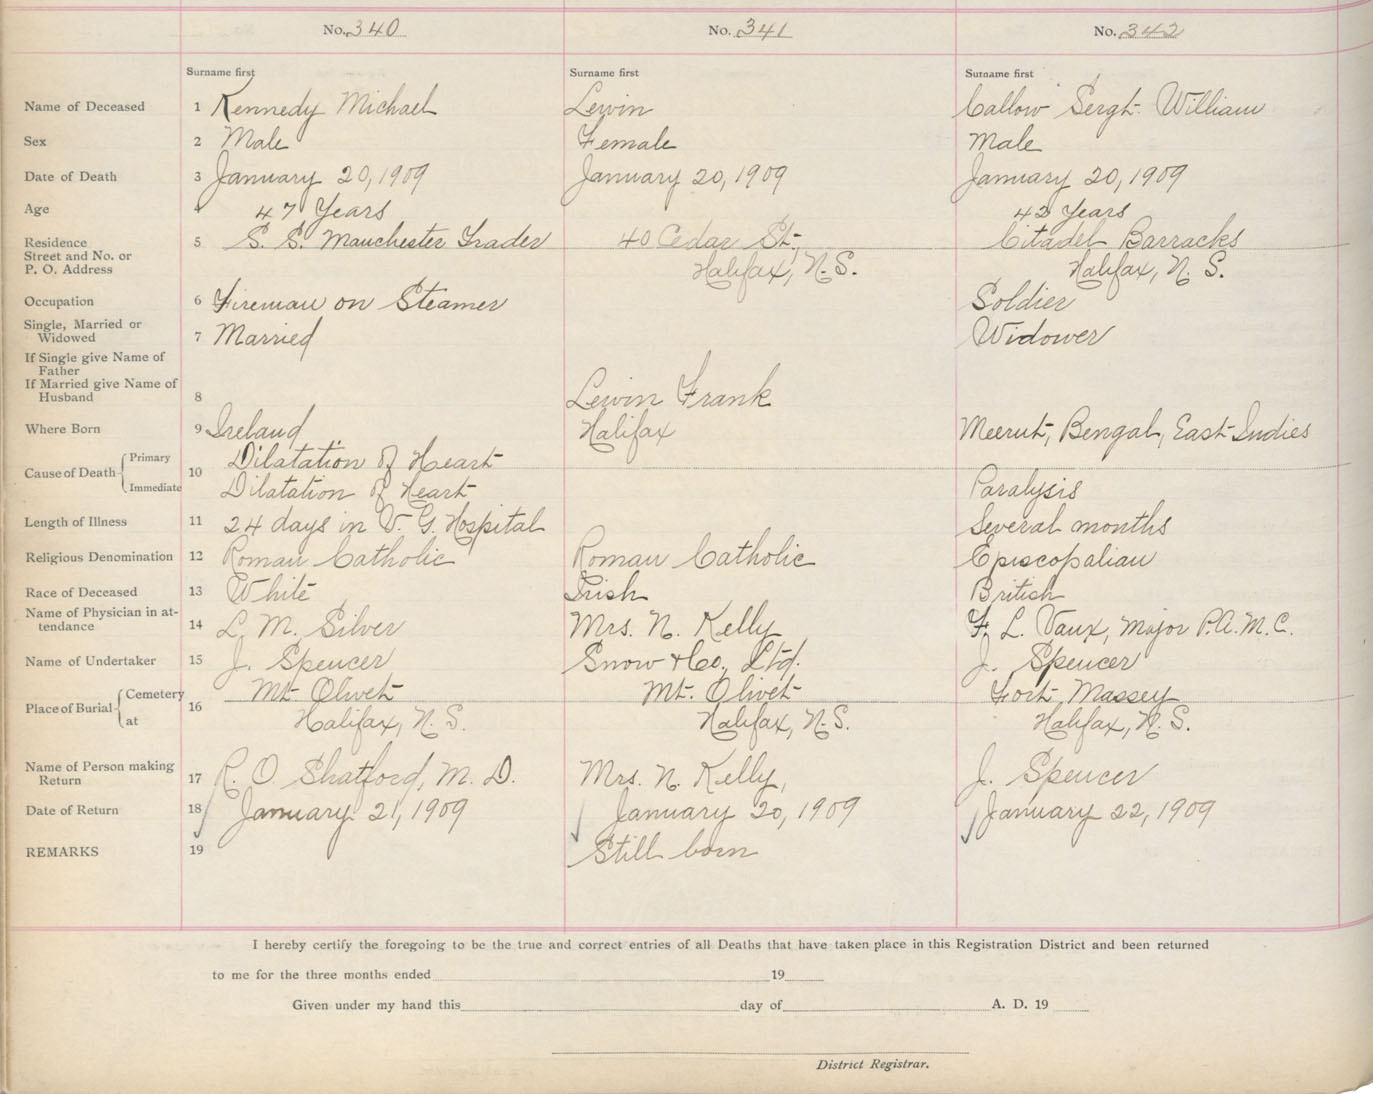 No. 340 No. 341 No. 342
Surname first Surname first Surname first
Name of Deceased 1 Kennedy Michael Lewin Callow Sergt. William
Sex 2 Male Female Male
Date of Death 3 January 20, 1909 January 20, 1909 January 20, 1909
Age 4 47 Years 42 Years
Residence 5 S. S. Manchester Trader 40 Cedar St., Citadel Barracks
Street and No. or
P. O. Address Halifax, N. S. Halifax, N. S.
Occupation 6 Fireman on Steamer Soldier
Single, Married or
Widowed 7 Married Widower
If Single give Name of
Father
If Married give Name of
Husband 8 Lewin Frank
Where Born 9 Ireland Halifax Meerut, Bengal, East Indies
Cause of Death Primary 10 Dilatation of Heart
Immediate Dilatation of Heart Paralysis
Length of Illness 11 24 days in V. G. Hospital Several months
Religious Denomination 12 Roman Catholic Roman Catholic Episcopalian
Race of Deceased 13 White Irish British
Name of Physician in at-
tendance 14 L. M. Silver Mrs. N. Kelly F. L. Vaux, Major P.A.M.C.
Name of Undertaker 15 J. Spencer Snow & Co., Ltd. J. Spencer
Place of Burial Cemetery 16 Mt Olivet Mt. Olivet Fort Massey
at Halifax, N. S. Halifax, N. S. Halifax, N. S.
Name of Person making
Return 17 R. O. Shatford, M. D. Mrs. N. Kelly, J. Spencer
Date of Return 18 January 21, 1909 January 20, 1909 January 22, 1909
REMARKS 19 Still born
I hereby certify the foregoing to be the true and correct entries of all Deaths that have taken place in this Registration District and been returned
to me for the three months ended 19
Given under my hand this day of A. D. 19
District Registrar.